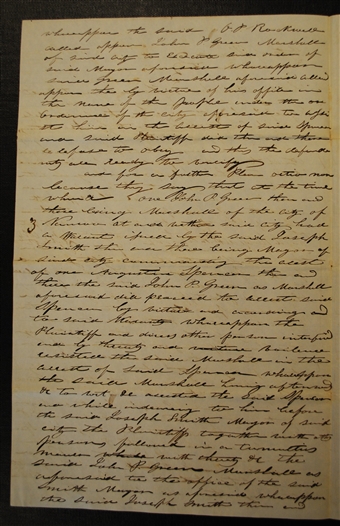 whereupon the said O P Rockwell
called upon John P Green Marshall
of said city to execute said order of
said Mayor aforesaid whereupon
said Green Marshall aforesaid called
upon the by virtue of his office in
the name of the people under the
ordinance of the city aforesaid to
him in the arrest of said Spencer
and said Plaintiff did then and there
refuse to obey and this the defend
ants are ready to verify
and for a further Plea
because they say that at the time
when &c one John P Green then and
there being Marshall of the city of
Nauvoo at and within said city had
a issued by the said Joseph
Smith then and there being Mayor of
said city commanding the arrest
of one Augustine Spencer then and
there the said John P. Green as Marshall
aforesaid did proceed to arrest said
Spencer by virtue and according
to said whereupon the
Plaintiff and divers other persons interfered
and by threats and violence
resisted the said Marshall in the
arrest of said Spencer whereupon
the said Marshall having
&c he arrested the said Spencer
and while him before
the said Joseph Smith Mayor of said
city the Plaintiff together with
persons followed in a tumultuous
manner with threats &c the
said John P Green Marshall as
aforesaid to the office of the said
Smith Mayor as aforesaid whereupon
the said Joseph Smith then and